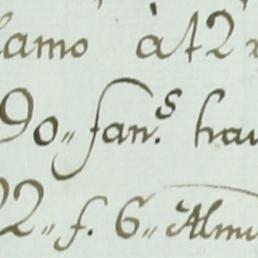 lamo à 12
90,, fan.s hau
22,, f. 6,, Almu